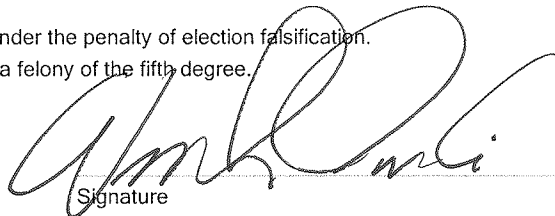 nder the penalty of election falsification.
a felony of the fifth degree.
Signature